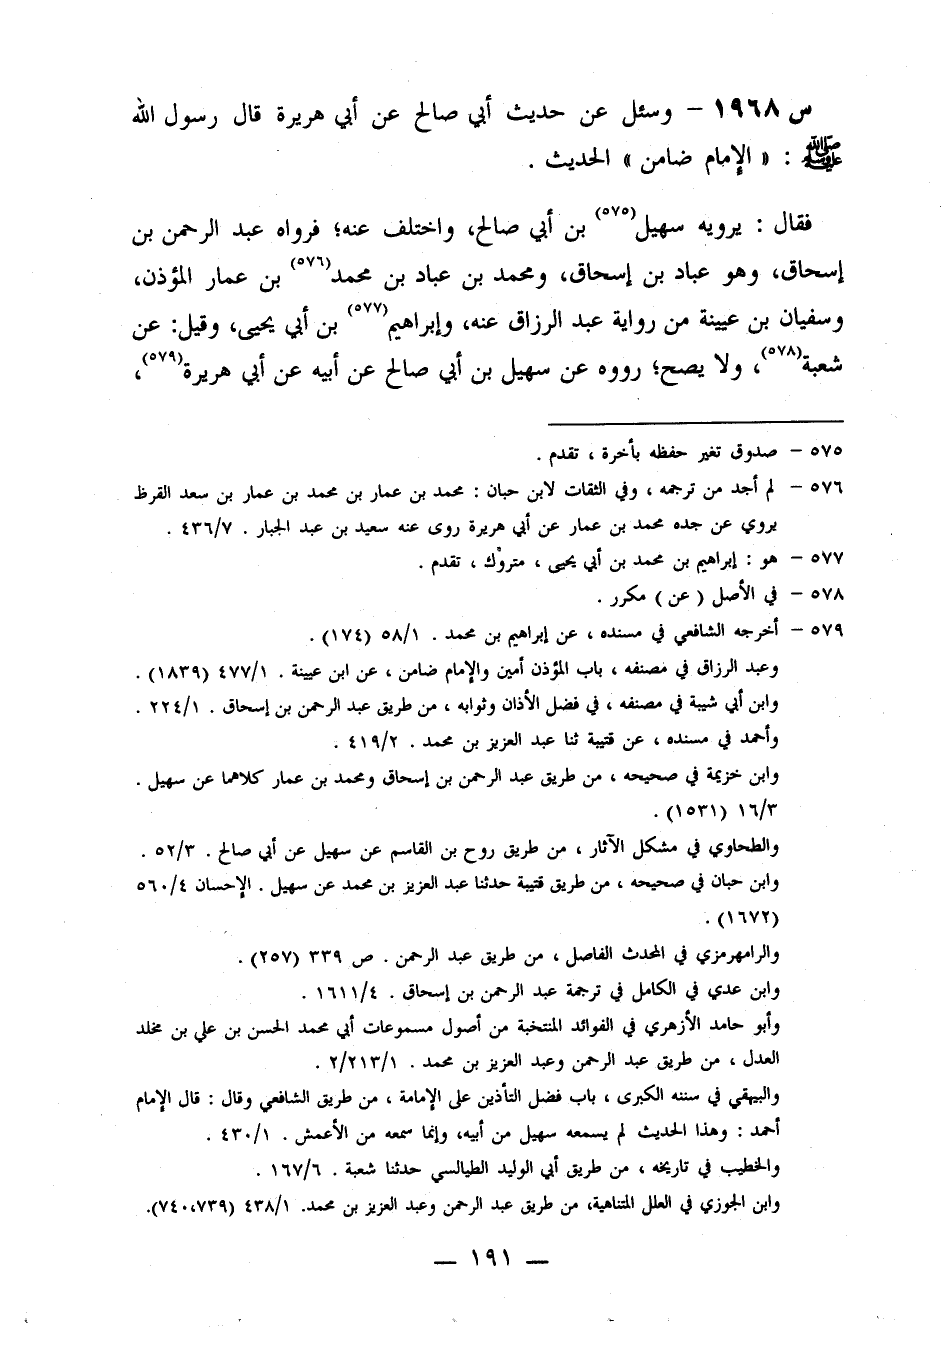 س ١٩٦٨ – وسئل عن حديث أبي صالح عن أبي هريرة قال رسول الله
ﷺ : « الإمام ضامن » الحديث .
فقال : يرويه سهيل(٥٧٥) بن أبي صالح، واختلف عنه؛ فرواه عبد الرحمن بن
إسحاق، وهو عباد بن إسحاق، ومحمد بن عباد بن محمد(٥٧٦) بن عمار المؤذن،
وسفيان بن عيينة من رواية عبد الرزاق عنه، وإبراهيم(٥٧٧) بن أبي يحيى، وقيل: عن
شعبة(٥٧٨)، ولا يصح؛ رووه عن سهيل بن أبي صالح عن أبيه عن أبي هريرة(٥٧٩)،
٥٧٥ – صدوق تغير حفظه بأخرة ، تقدم .
٥٧٦ – لم أجد من ترجمه ، وفي الثقات لابن حبان : محمد بن عمار بن محمد بن عمار بن سعد القرظ
يروي عن جده محمد بن عمار عن أبي هريرة روى عنه سعيد بن عبد الجبار . ٤٣٦/٧ .
٥٧٧ – هو : إبراهيم بن محمد بن أبي يحيى ، متروك ، تقدم .
٥٧٨ – في الأصل ( عن ) مكرر .
٥٧٩ – أخرجه الشافعي في مسنده ، عن إبراهيم بن محمد . ٥٨/١ (١٧٤) .
وعبد الرزاق في مصنفه ، باب المؤذن أمين والإمام ضامن ، عن ابن عيينة . ٤٧٧/١ (١٨٣٩) .
وابن أبي شيبة في مصنفه ، في فضل الأذان وثوابه ، من طريق عبد الرحمن بن إسحاق . ٢٢٤/١ .
وأحمد في مسنده ، عن قتيبة ثنا عبد العزيز بن محمد . ٤١٩/٢ .
وابن خزيمة في صحيحه ، من طريق عبد الرحمن بن إسحاق ومحمد بن عمار كلاهما عن سهيل .
١٦/٣ (١٥٣١) .
والطحاوي في مشكل الآثار ، من طريق روح بن القاسم عن سهيل عن أبي صالح . ٥٢/٣ .
وابن حبان في صحيحه ، من طريق قتيبة حدثنا عبد العزيز بن محمد عن سهيل . الإحسان ٥٦٠/٤
(١٦٧٢) .
والرامهرمزي في المحدث الفاصل ، من طريق عبد الرحمن . ص ٣٣٩ (٢٥٧) .
وابن عدي في الكامل في ترجمة عبد الرحمن بن إسحاق . ١٦١١/٤ .
وأبو حامد الأزهري في الفوائد المنتخبة من أصول مسموعات أبي محمد الحسن بن علي بن مخلد
العدل ، من طريق عبد الرحمن وعبد العزيز بن محمد . ٢/٢١٣/١ .
والبيهقي في سننه الكبرى ، باب فضل التأذين على الإمامة ، من طريق الشافعي وقال : قال الإمام
أحمد : وهذا الحديث لم يسمعه سهيل من أبيه، وإنما سمعه من الأعمش . ٤٣٠/١ .
والخطيب في تاريخه ، من طريق أبي الوليد الطيالسي حدثنا شعبة . ١٦٧/٦ .
وابن الجوزي في العلل المتناهية، من طريق عبد الرحمن وعبد العزيز بن محمد. ٤٣٨/١ (٧٤٠،٧٣٩).
— ١٩١ —